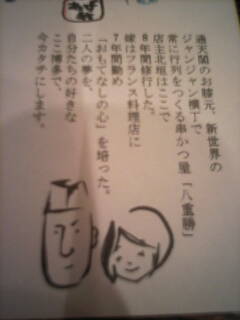 通天閣のお膝元、新世界の
ジャンジャン横丁で
常に行列をつくる串かつ屋「八重勝」
店主北垣はここで
8年間修行した。
嫁はフランス料理店に
7年間勤め
「おもてなしの心」を培った。
二人の夢を、
自分たちの好きな
ここ博多で、
今カタチにします。